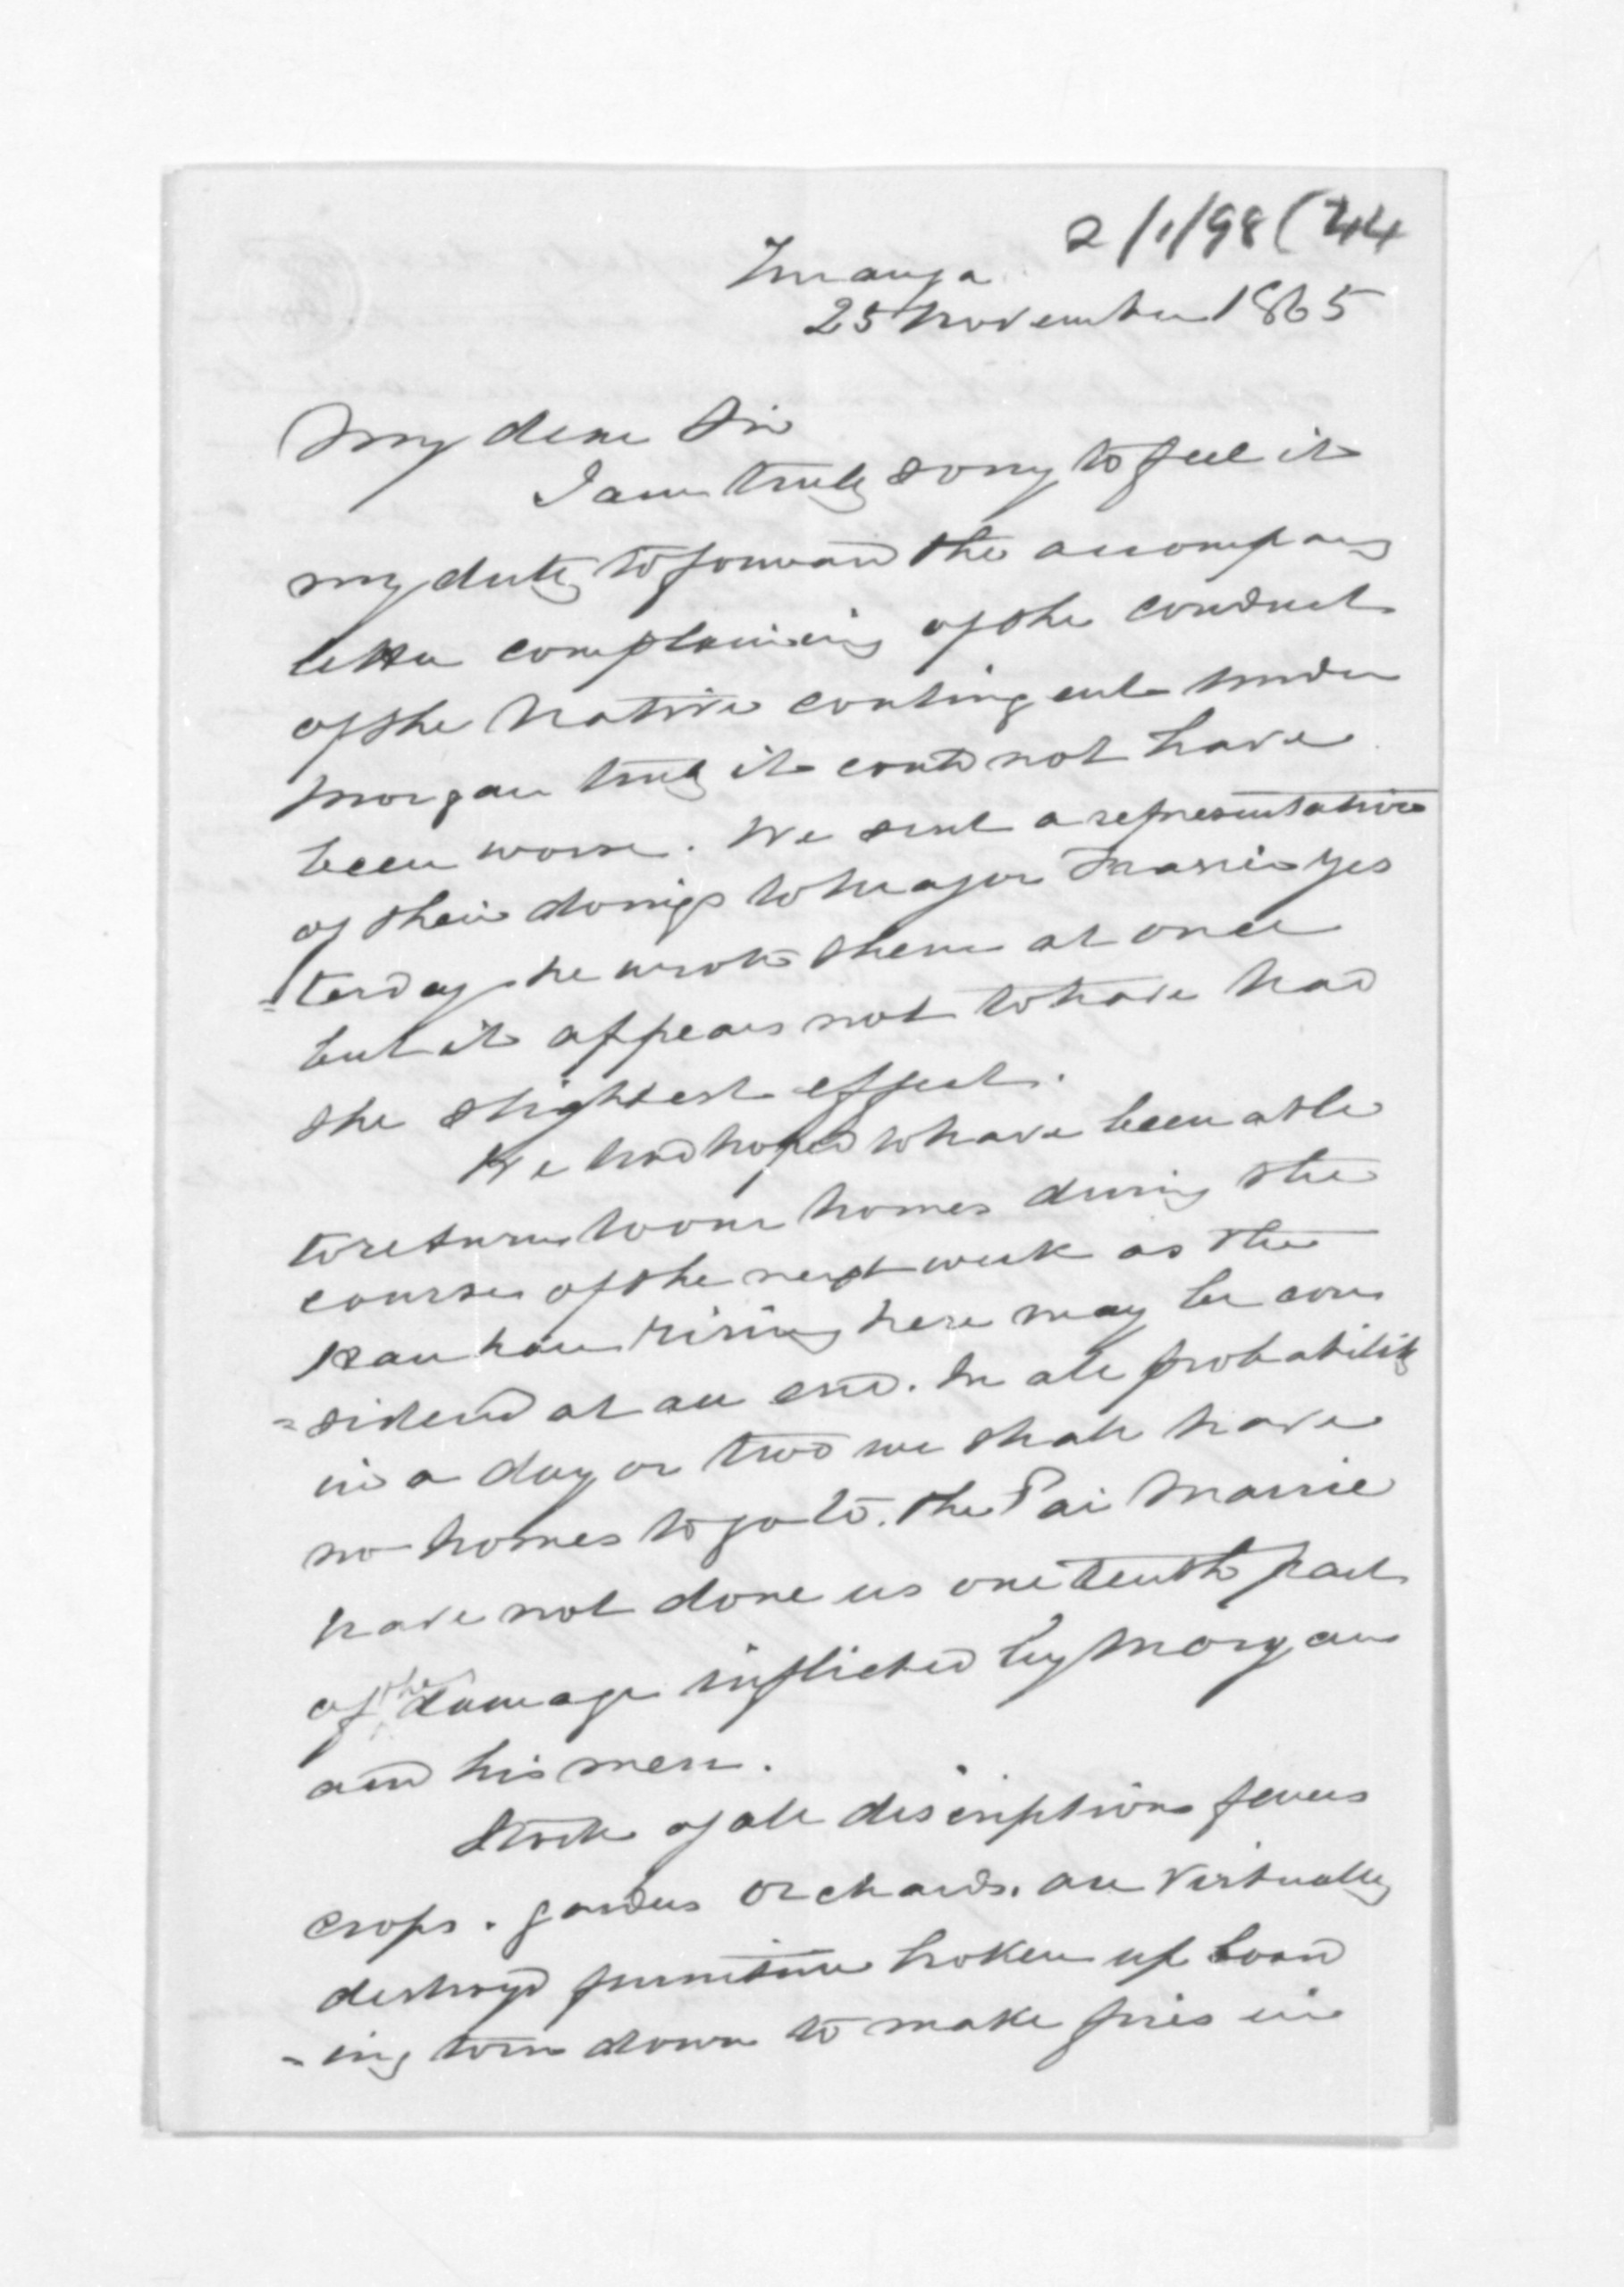 2/1/98 (44
Turanga
25 November 1865
My dear Sir
I am truly sorry to feel it
my duty to forward the accompany
letter complaining of the conduct
of the Native contingent under
Morgan truly it could not have
been worse. We sent a representative
of their doings to Major yes
=terday he wrote them at once
but it appears not to have had
the slightest effect.
We had hoped to have been able
to return to our homes during the
course of the next week as the
Hau hau rising here may be con
=sidered at an end. In all probability
in a day or two we shall have
no homes to go to. The Pai Marrie
have not done us one tenth part
of the damage inflicted by Morgan
and his men.
Stock of all discriptions fences
crops. gardens orchards. are virtually
destroyd furniture broken up board
=ing torn down to make fires in